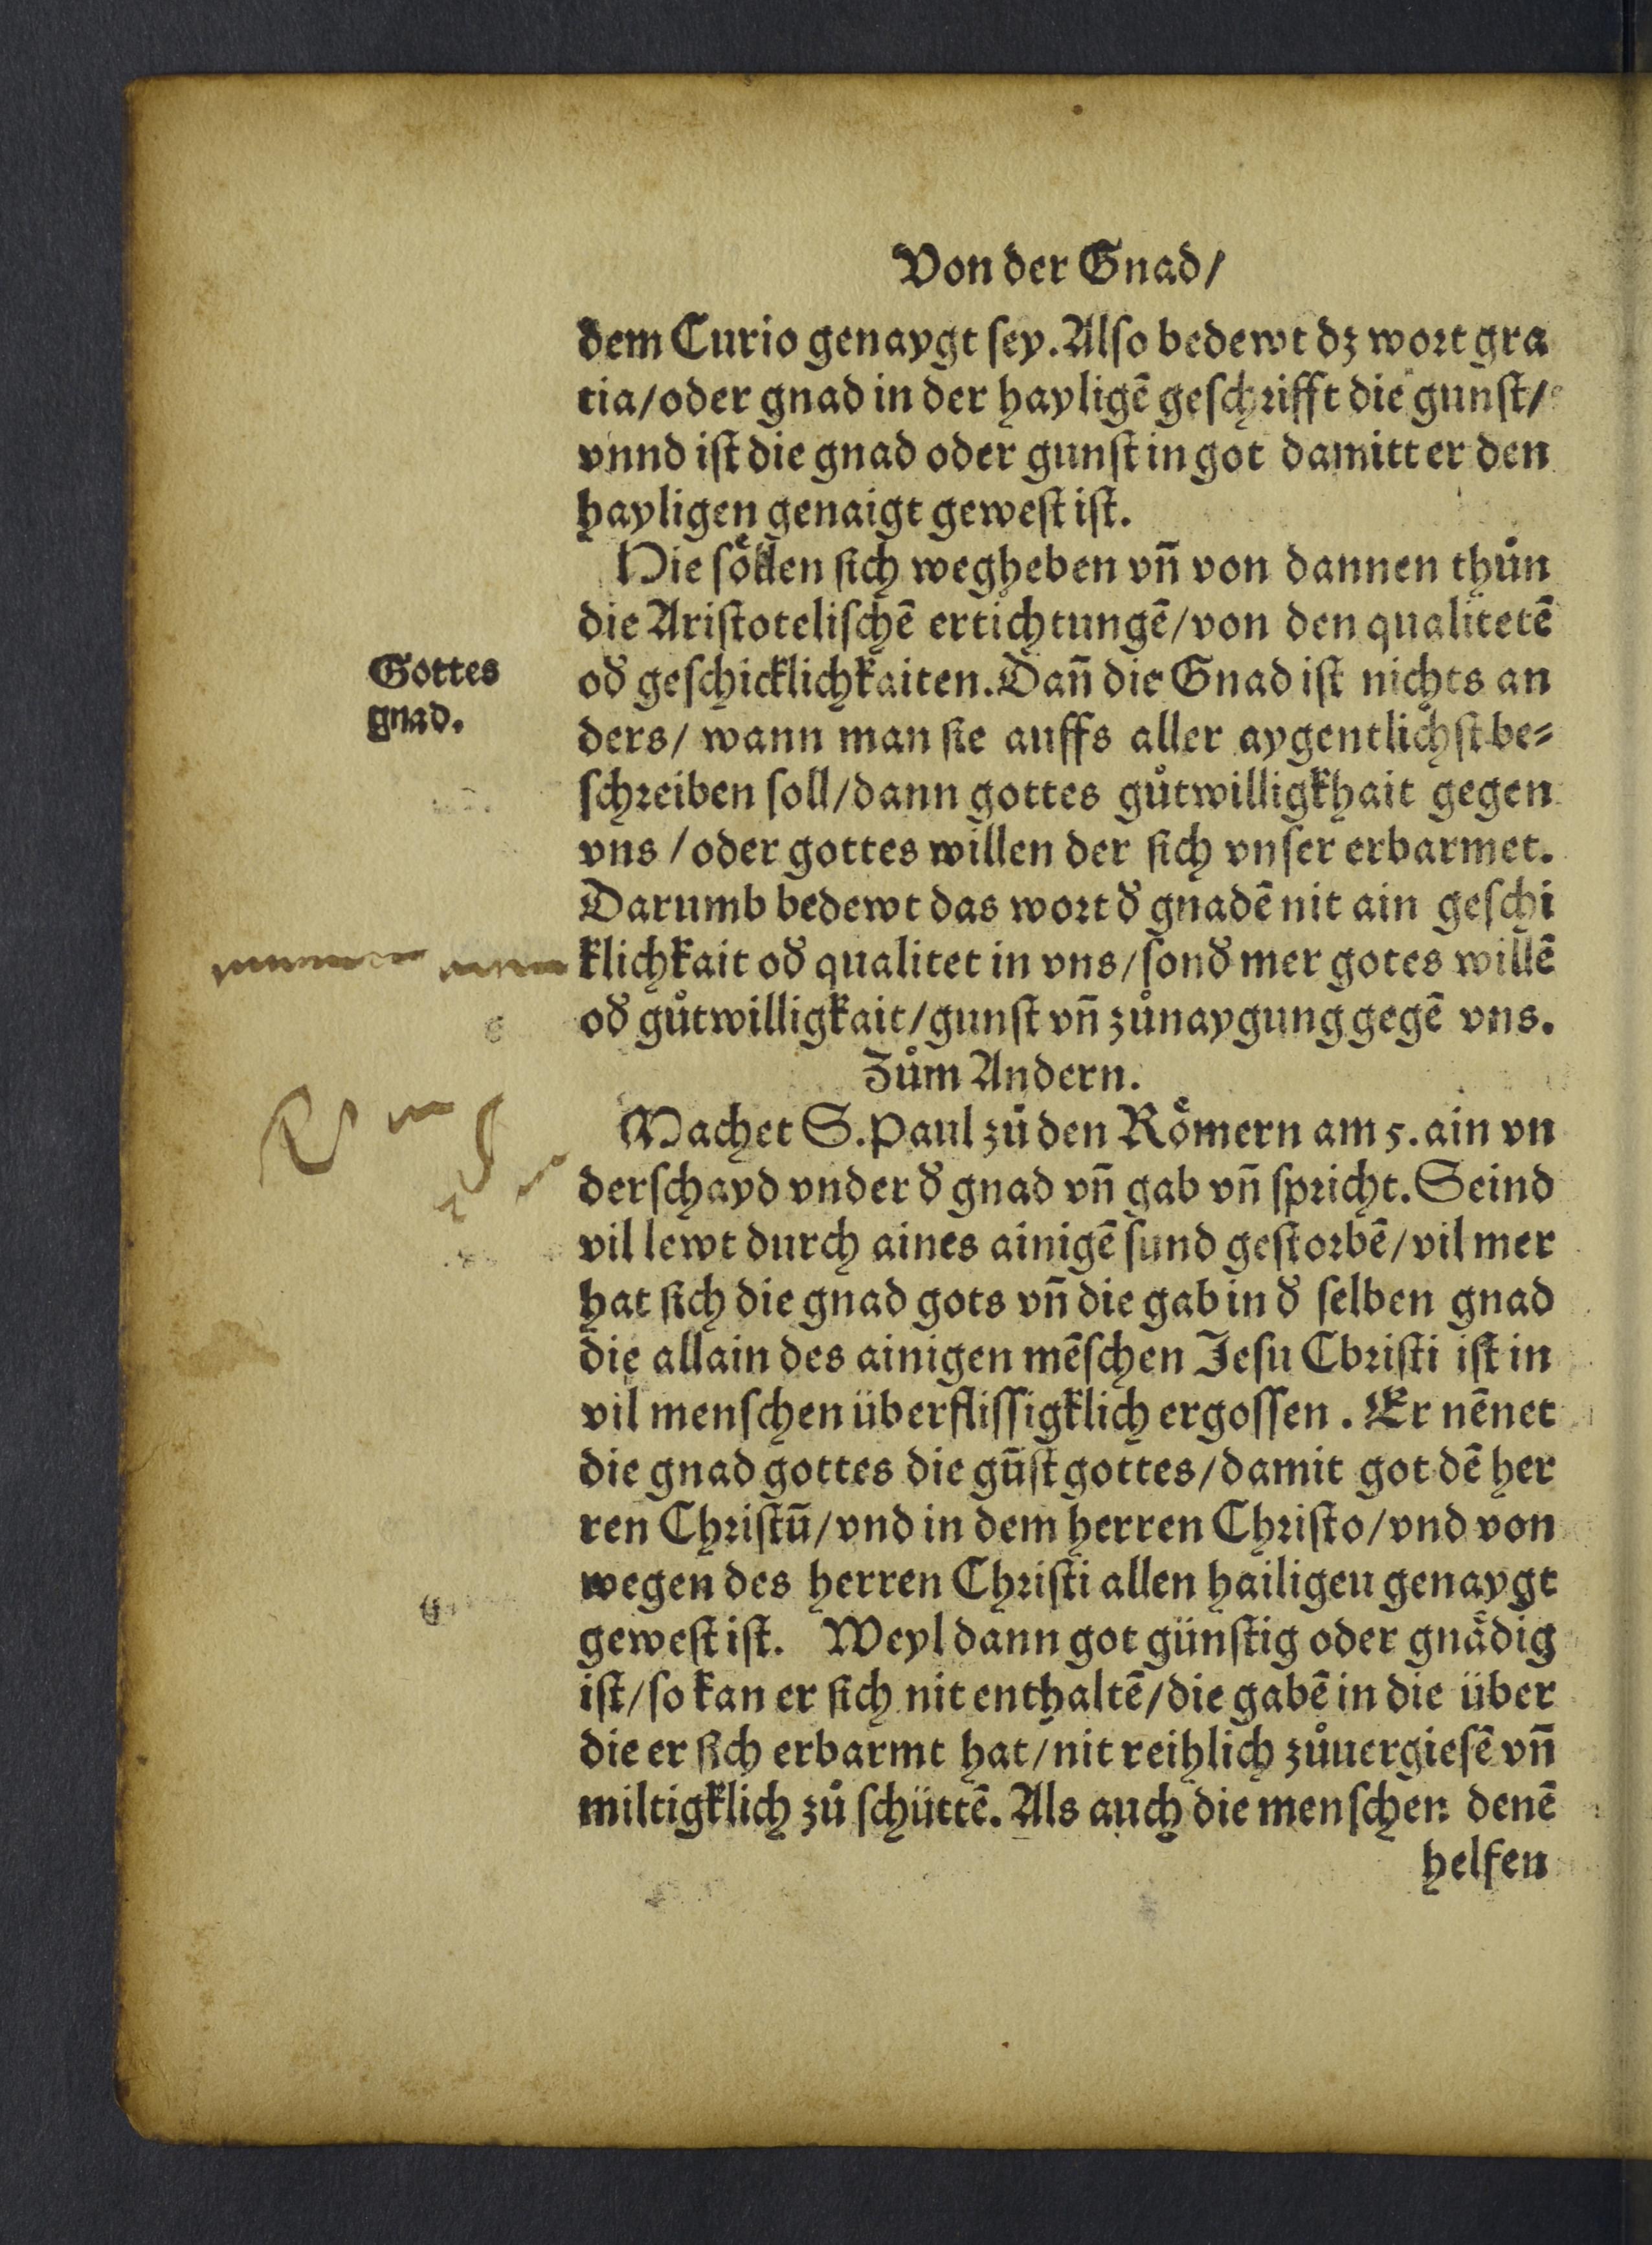 Von der Gnad/
dem Curio genaygt ſey. Alſo bedewt dz wort gra
tia/oder gnad in der hayligẽ geſchrifft die gunſt/
vnnd iſt die gnad oder gunſt in got damitt er den
hayligen genaigt geweſt iſt.
Hie ſoͤllen ſich wegheben vñ von dannen thuͦn
die Ariſtoteliſchẽ ertichtungẽ/von den qualitetẽ
Gottes
gnad.
oð geſchicklichkaiten. Dañ die Gnad iſt nichts an
ders/ wann man ſie auffs aller aygentlichſt be⸗
ſchreiben ſoll/dann gottes guͦtwilligkhait gegen
vns /oder gottes willen der ſich vnſer erbarmet.
Darumb bedewt das wort ð gnadẽ nit ain geſchi
klichkait oð qualitet in vns/ſonð mer gotes willẽ
oð guͦtwilligkait/gunſt vñ zuͦnaygung gegẽ vns.
Zuͦm Andern.
Machet S. Paul zuͦ den Roͤmern am 5. ain vn
derſchayd vnder ð gnad vñ gab vñ ſpricht. Seind
vil lewt durch aines ainigẽ ſund geſtorbẽ/vil mer
hat ſich die gnad gots vñ die gab in ð ſelben gnad
die allain des ainigen mẽſchen Jeſu Cbriſti iſt in
vil menſchen überfliſſigklich ergoſſen. Er nẽnet
die gnad gottes die gũſt gottes/damit got dẽ her
ren Chriſtũ/vnd in dem herren Chriſto/vnd von
wegen des herren Chriſti allen hailigeu genaygt
geweſt iſt. Weyl dann got günſtig oder gnaͤdig
iſt/ſo kan er ſich nit enthaltẽ/die gabẽ in die über
die er ſich erbarmt hat/nit reihlich zuͦuergieſẽ vñ
miltigklich zuͦ ſchüttẽ. Als auch die menſchen denẽ
helfen